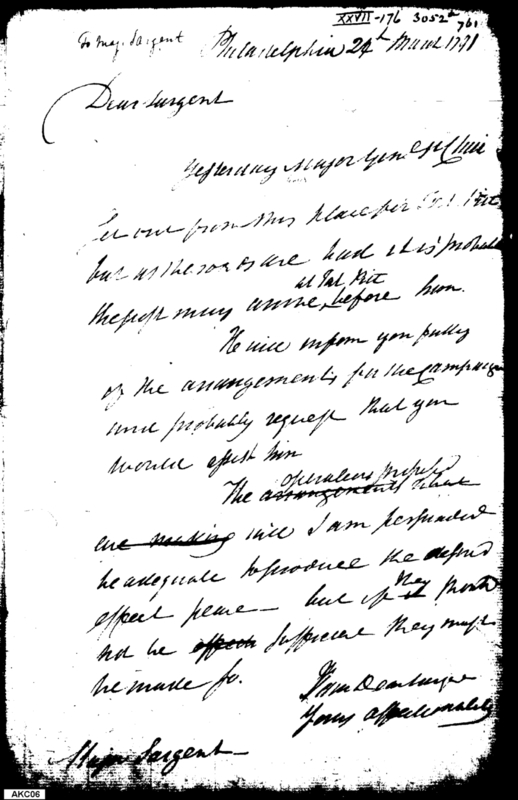 XXVII-176 3052d
761
To Maj. Sargent
Philadelphia 24th March 1791
Dear Sargent
Yesterday Major Genl St Clair
set out from this place for Fort Pitt
but as the roads are bad it is probable
the post may arrive, before him.
at Fort Pitt
He will inform you fully
of the arrangements for the Campaign
and probably request that you
would assist him
The arrangements that
operations proposed
are making will I am persuaded
be adequate to produce the desired
effect peace — but if it should
they
not be effectu sufficient they must
be made so.
I am Dear Sargent
Yours affectionately
Major Sargent —
AKC06